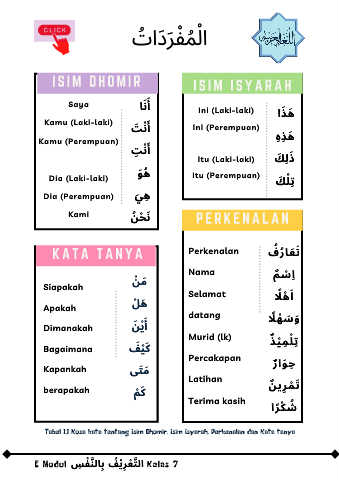 CLICK
الْمُفْرَدَاتُ
اللغة العربية
ISIM DHOMIR
Saya أَنَا
Kamu (Laki-laki) أَنْتَ
Kamu (Perempuan) أَنْتِ
Dia (Laki-laki) هُوَ
Dia (Perempuan) هِيَ
Kami نَحْنُ
ISIM ISYARAH
Ini (Laki-laki) هَذَا
Ini (Perempuan) هَذِهِ
Itu (Laki-laki) ذَلِكَ
Itu (Perempuan) تِلْكَ
KATA TANYA
Siapakah مَنْ
Apakah هَلْ
Dimanakah أَيْنَ
Bagaimana كَيْفَ
Kapankah مَتَى
berapakah كَمْ
PERKENALAN
Perkenalan تَعَارُفُ
Nama اِسْمٌ
Selamat اَهْلًا
datang وَسَهْلًا
Murid (lk) تِلْمِيْذٌ
Percakapan حِوَارٌ
Latihan تَمْرِيْنٌ
Terima kasih شُكْرًا
Tabel 1.1 Kosa kata tentang isim Dhomir, isim isyarah, Perkenalan dan Kata tanya
E Modul التَّعْرِيْفُ بِالنَّفْسِ Kelas 7